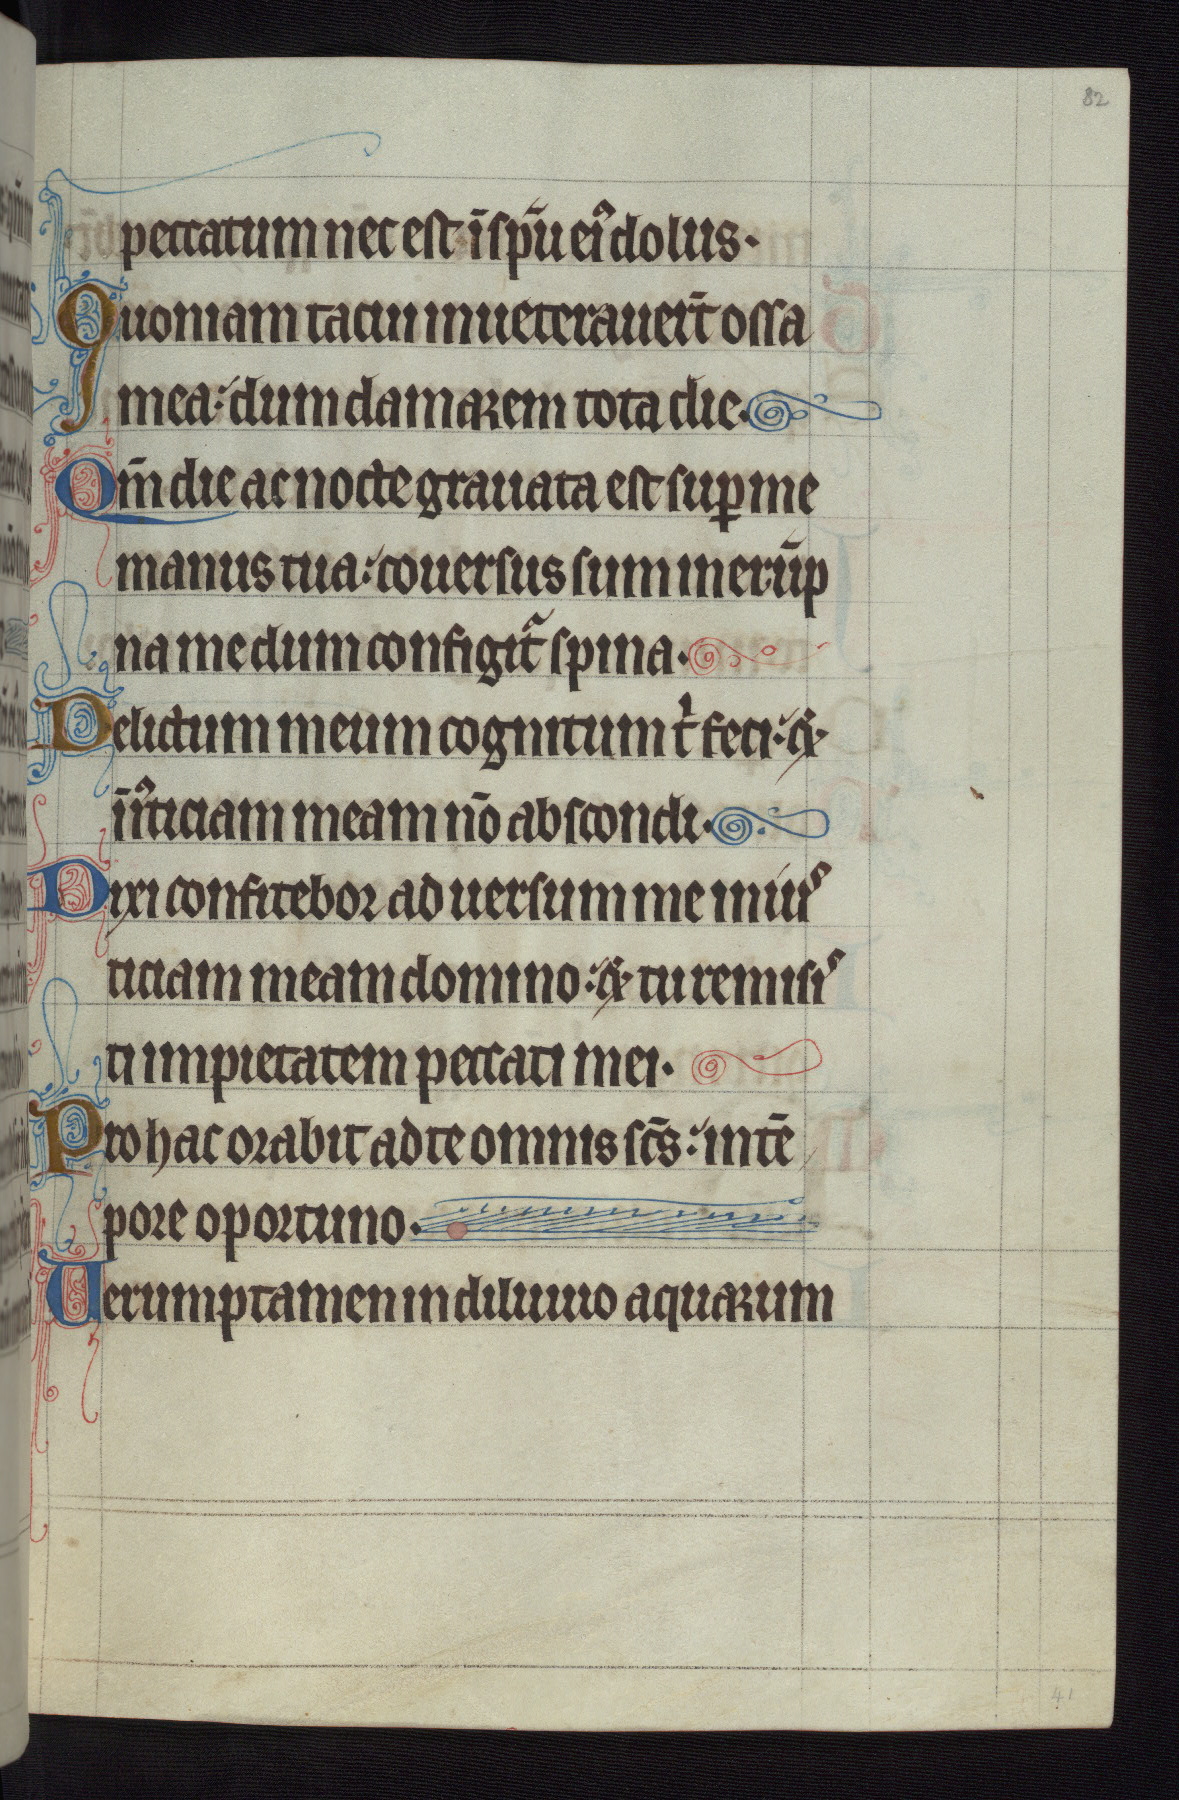 82
peccatum nec est ī sp̄u eiꝰ dolus·
Quoniam tacui inueterauer̄t ossa
mea: dum clamarem tota die.
Qm̄ die ac nocte grauata est suꝑ me
manus tua: couersus sum in erūp
na me dum configit᷑ spina.
Delictum meum cognitum t̓ feci: ⁊
iniꝰticiam meam nō abscondi.
Dixi confitebor aduersum me iniuẜ
ticiam meam domino: ⁊ tu remisiẜ
ti impietatem peccati mei.
Pro hac orabit ad te omnis sc̄s: in tē
pore oportuno.
Uerumptamen in diluuio aquarum
41